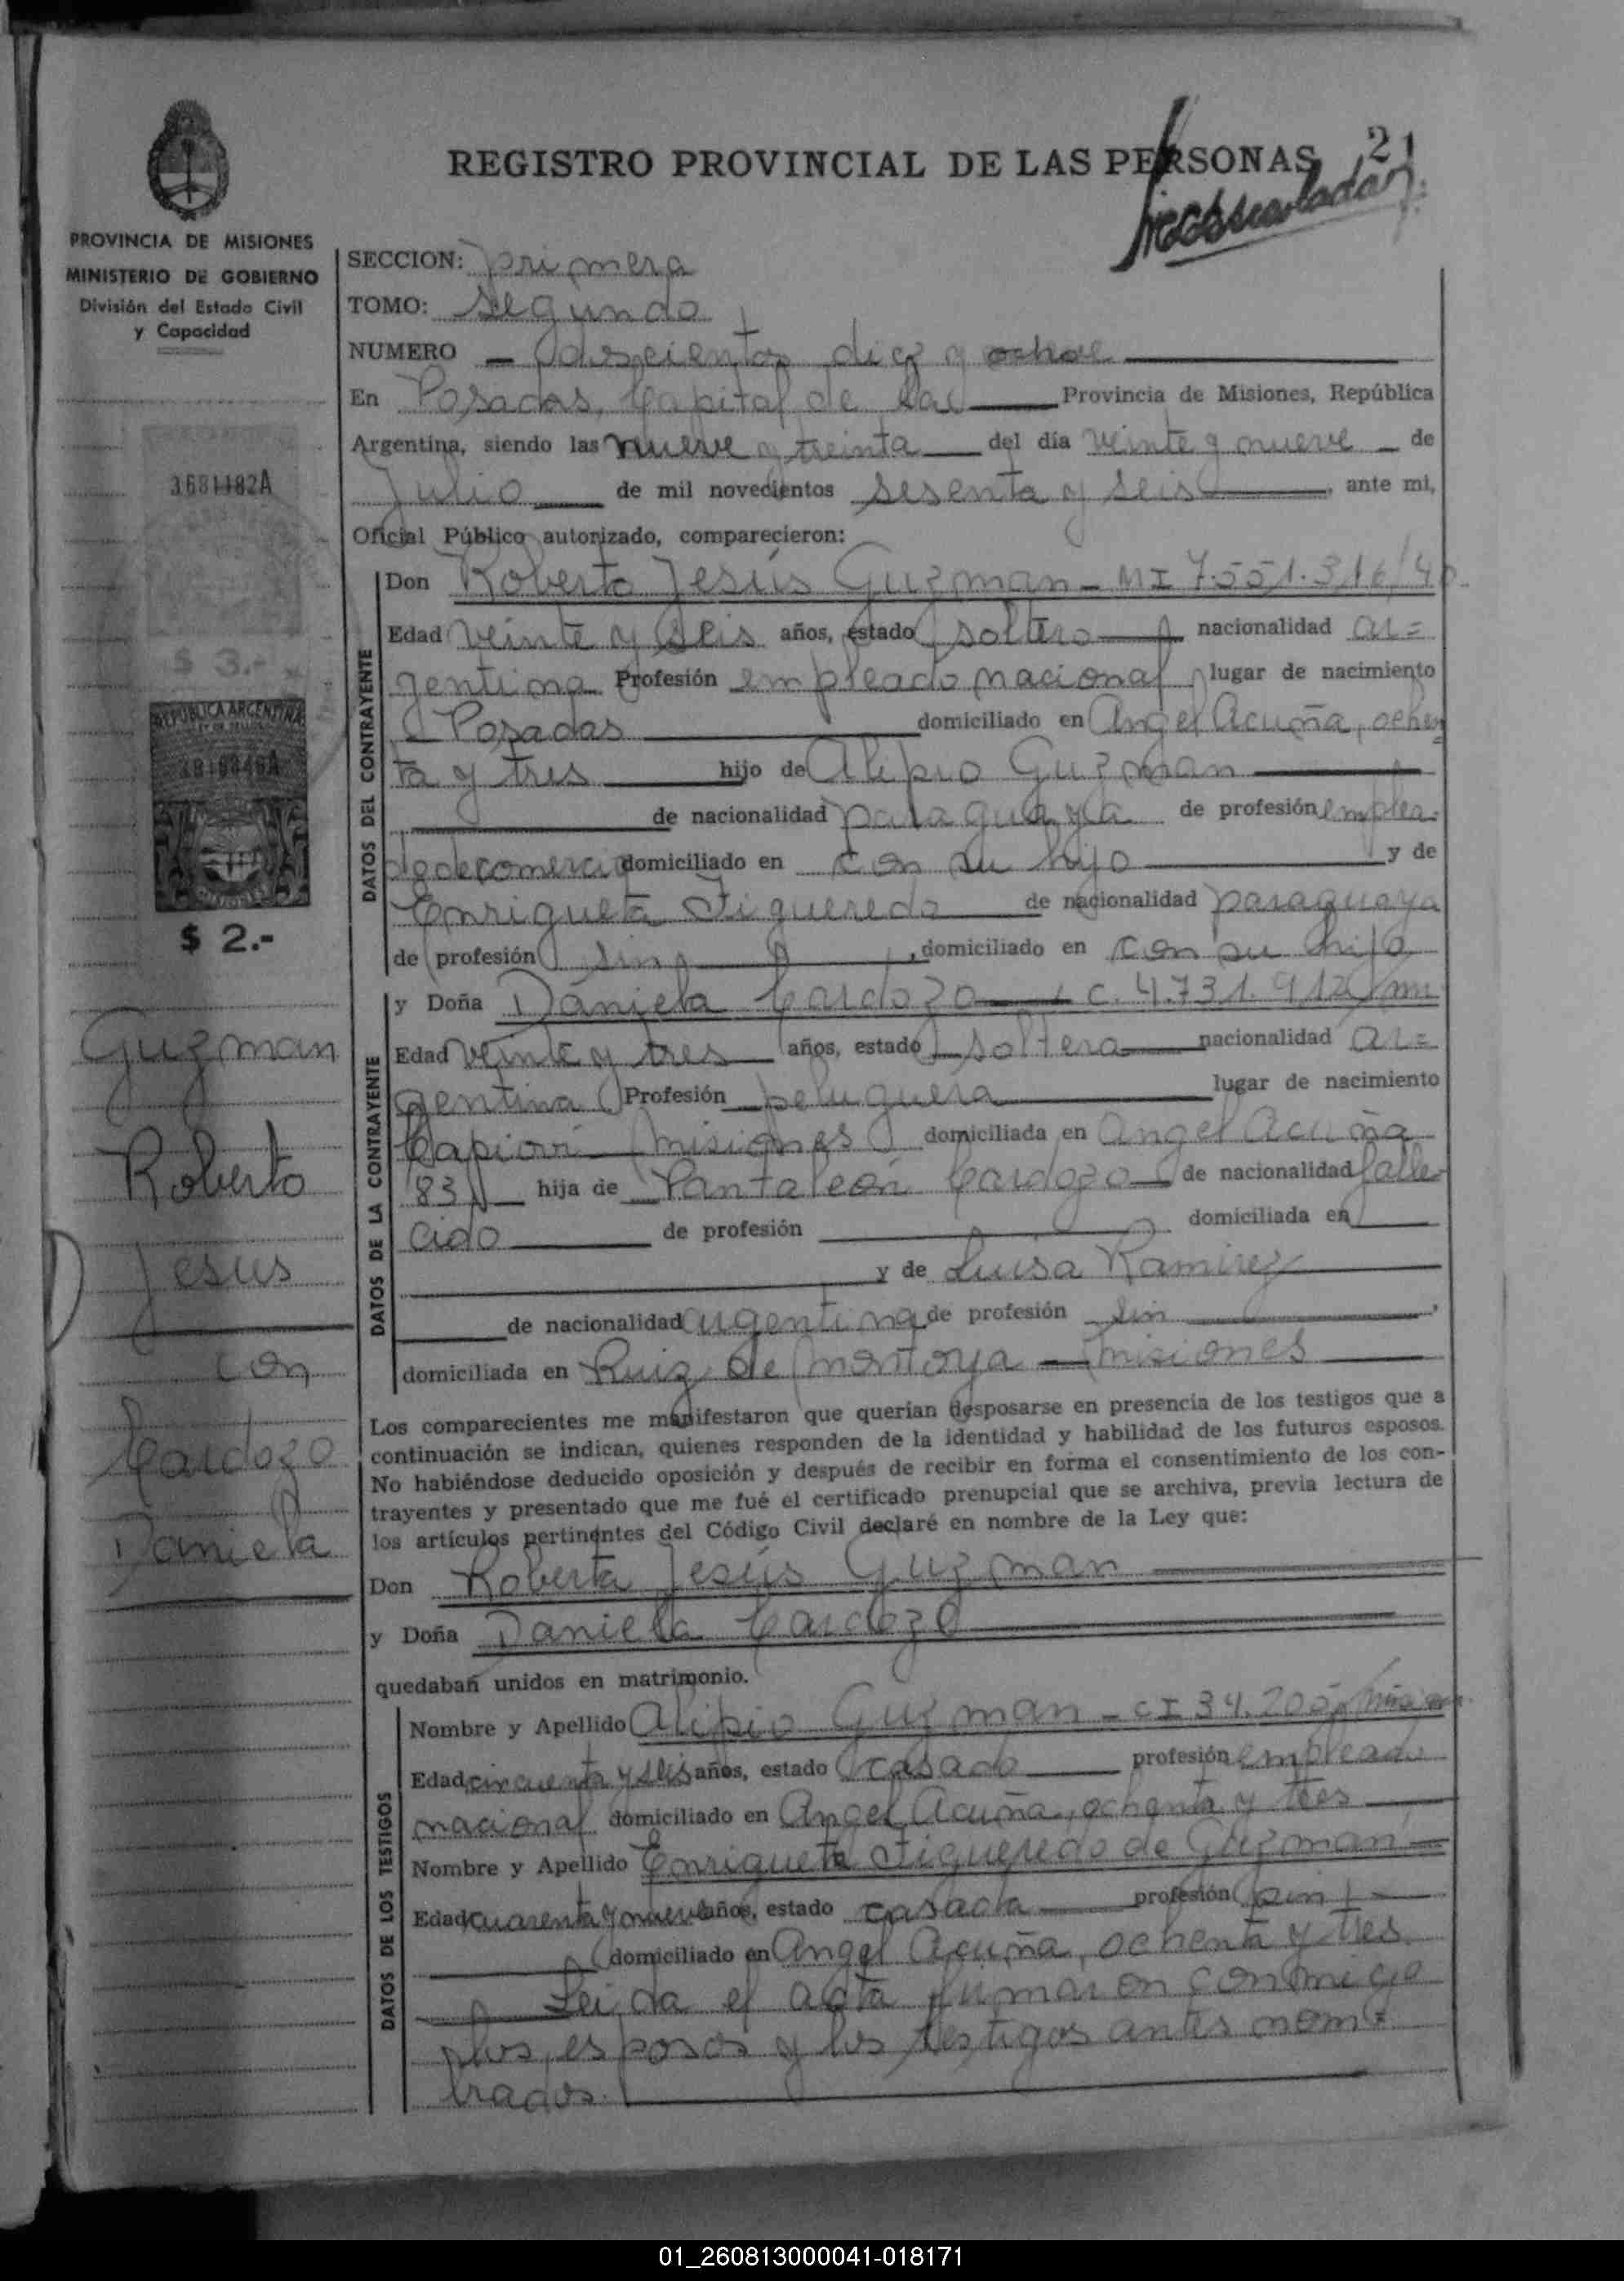 REGISTRO PROVINCIAL DE LAS PERSONAS
21
PROVINCIA DE MISIONES
MINISTERIO DE GOBIERNO
División del Estado Civil
y Capacidad
SECCION: primera
TOMO: segundo
NUMERO — doscientos diez y ocho
En Posadas, Capital de la Provincia de Misiones, República
Argentina, siendo las nueve y treinta del día veinte y nueve de
Julio de mil novecientos sesenta y seis, ante mi,
Oficial Público autorizado, comparecieron:
3681182A
$ 3.-
REPUBLICA ARGENTINA
$ 2.-
Guzman
Roberto
Jesus
con
Cardozo
Daniela
DATOS DEL CONTRAYENTE
Don Roberto Jesús Guzman - MI 7.551.316/
Edad veinte y seis años, estado soltero nacionalidad ar=
gentina Profesión empleado nacional lugar de nacimiento
Posadas domiciliado en Angel Acuña, ochen
ta y tres hijo de Alipio Guzman
de nacionalidad paraguaya de profesión emplea
do de comercio domiciliado en con su hijo y de
Enriqueta Figueredo de nacionalidad paraguaya
de profesión sin, domiciliado en con su hijo
DATOS DE LA CONTRAYENTE
y Doña Daniela Cardozo — C. 4.731.912
Edad veinte y tres años, estado soltera nacionalidad ar=
gentina Profesión peluquera lugar de nacimiento
Capioví - Misiones domiciliada en Angel Acuña
83 hija de Pantaleón Cardozo de nacionalidad falle
cido de profesión domiciliada en
y de Luisa Ramirez
de nacionalidad argentina de profesión sin,
domiciliada en Ruiz de Montoya — Misiones
Los comparecientes me manifestaron que querían desposarse en presencia de los testigos que a
continuación se indican, quienes responden de la identidad y habilidad de los futuros esposos.
No habiéndose deducido oposición y después de recibir en forma el consentimiento de los con-
trayentes y presentado que me fué el certificado prenupcial que se archiva, previa lectura de
los artículos pertinentes del Código Civil declaré en nombre de la Ley que:
Don Roberto Jesús Guzman
y Doña Daniela Cardozo
quedaban unidos en matrimonio.
DATOS DE LOS TESTIGOS
Nombre y Apellido Alipio Guzman - CI 34.200
Edad cincuenta y seis años, estado casado profesión empleado
nacional domiciliado en Angel Acuña, ochenta y tres
Nombre y Apellido Enriqueta Figueredo de Guzman
Edad cuarenta y nueve años, estado casada profesión sin
domiciliado en Angel Acuña, ochenta y tres
Leída el acta firmaron conmigo
los esposos y los testigos antes nom=
brados.
01_260813000041-018171